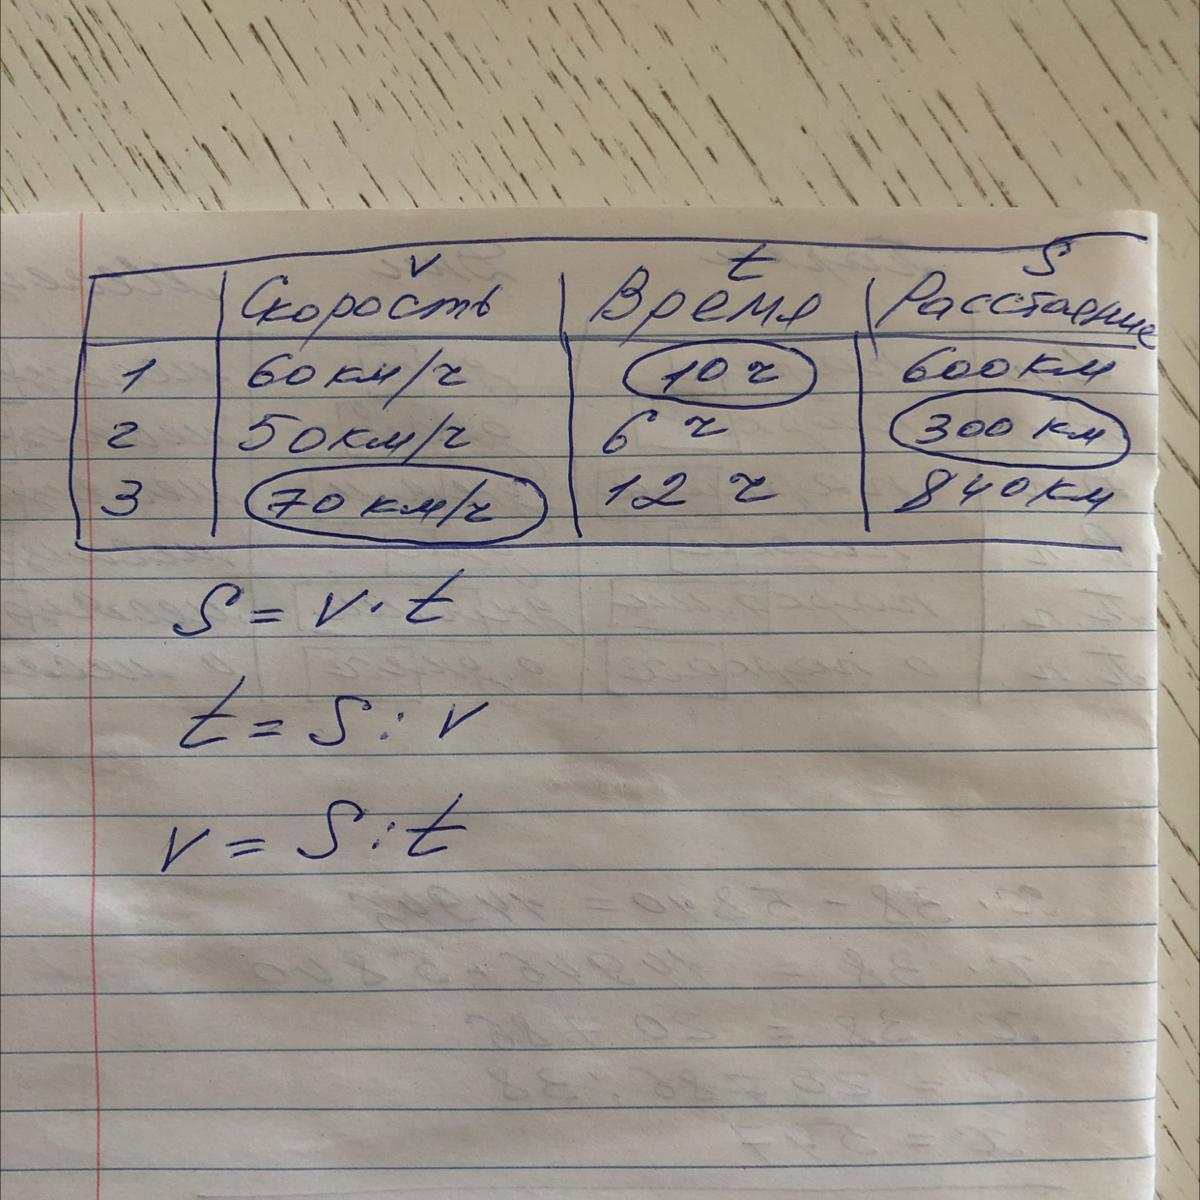 v t S
Скорость Время Расстояние
1 60 км/ч 10 ч 600 км
2 50 км/ч 6 ч 300 км
3 70 км/ч 12 ч 840 км
S = v · t
t = S : v
v = S : t